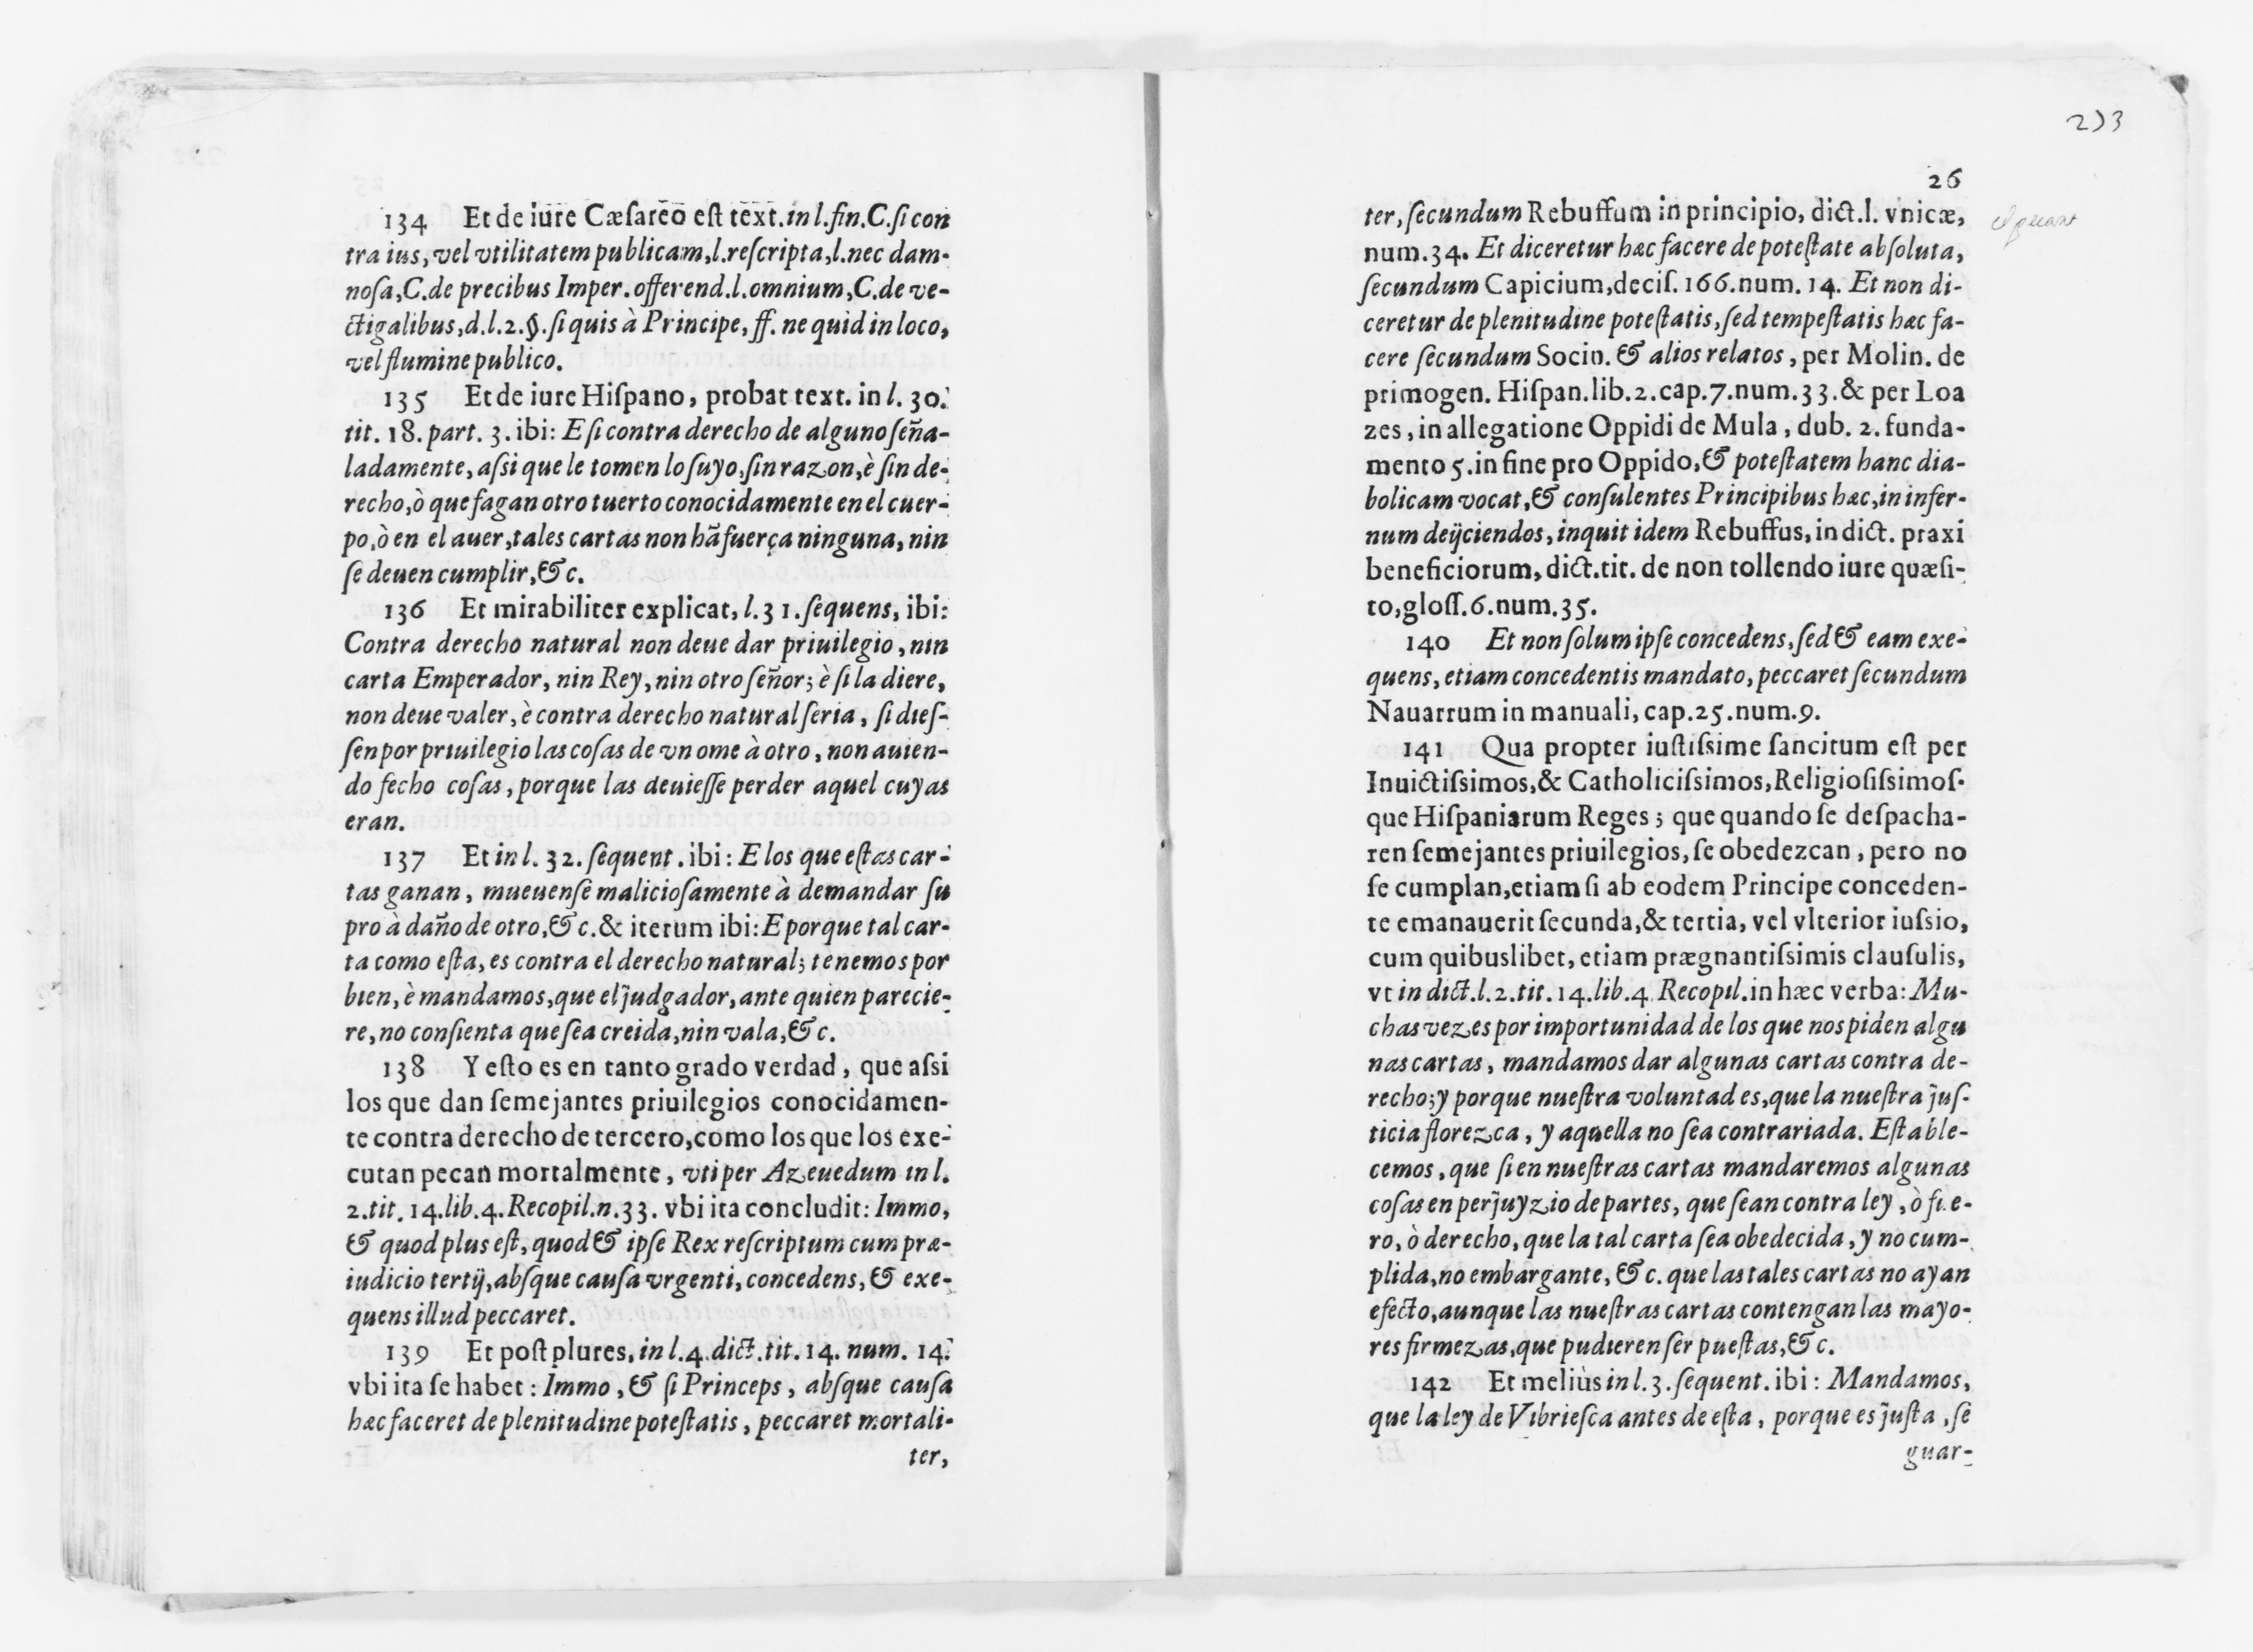 134 Et de iure Cæsareo est text. in l. fin. C. si con
tra ius, vel vtilitatem publicam, l. rescripta, l. nec dam-
nosa, C. de precibus Imper. offerend. l. omnium, C. de ve-
ctigalibus, d. l. 2. §. si quis à Principe, ff. ne quid in loco,
vel flumine publico.
135 Et de iure Hispano, probat text. in l. 30.
tit. 18. part. 3. ibi: E si contra derecho de alguno seña-
ladamente, assi que le tomen lo suyo, sin razon, è sin de-
recho, ò que fagan otro tuerto conocidamente en el cuer-
po, ò en el auer, tales cartas non hã fuerça ninguna, nin
se deuen cumplir, & c.
136 Et mirabiliter explicat, l. 31. sequens, ibi:
Contra derecho natural non deue dar priuilegio, nin
carta Emperador, nin Rey, nin otro señor; è si la diere,
non deue valer, è contra derecho natural seria, si dies-
sen por priuilegio las cosas de vn ome à otro, non auien-
do fecho cosas, porque las deuiesse perder aquel cuyas
eran.
137 Et in l. 32. sequent. ibi: E los que estas car-
tas ganan, mueuense maliciosamente à demandar su
pro à daño de otro, & c. & iterum ibi: E porque tal car-
ta como esta, es contra el derecho natural; tenemos por
bien, è mandamos, que el judgador, ante quien parecie-
re, no consienta que sea creida, nin vala, & c.
138 Y esto es en tanto grado verdad, que assi
los que dan semejantes priuilegios conocidamen-
te contra derecho de tercero, como los que los exe-
cutan pecan mortalmente, vti per Azeuedum in l.
2. tit. 14. lib. 4. Recopil. n. 33. vbi ita concludit: Immo,
& quod plus est, quod & ipse Rex rescriptum cum præ-
iudicio tertij, absque causa vrgenti, concedens, & exe-
quens illud peccaret.
139 Et post plures, in l. 4. dict. tit. 14. num. 14.
vbi ita se habet: Immo, & si Princeps, absque causa
hæc faceret de plenitudine potestatis, peccaret mortali-
ter,
233
26
ter, secundum Rebuffum in principio, dict. l. vnicæ,
num. 34. Et diceretur hæc facere de potestate absoluta,
secundum Capicium, decis. 166. num. 14. Et non di-
ceretur de plenitudine potestatis, sed tempestatis hæc fa-
cere secundum Socin. & alios relatos, per Molin. de
primogen. Hispan. lib. 2. cap. 7. num. 33. & per Loa
zes, in allegatione Oppidi de Mula, dub. 2. funda-
mento 5. in fine pro Oppido, & potestatem hanc dia-
bolicam vocat, & consulentes Principibus hæc, in infer-
num deijciendos, inquit idem Rebuffus, in dict. praxi
beneficiorum, dict. tit. de non tollendo iure quæsi-
to, gloss. 6. num. 35.
140 Et non solum ipse concedens, sed & eam exe-
quens, etiam concedentis mandato, peccaret secundum
Nauarrum in manuali, cap. 25. num. 9.
141 Qua propter iustissime sancitum est per
Inuictissimos, & Catholicissimos, Religiosissimos-
que Hispaniarum Reges; que quando se despacha-
ren semejantes priuilegios, se obedezcan, pero no
se cumplan, etiam si ab eodem Principe conceden-
te emanauerit secunda, & tertia, vel vlterior iussio,
cum quibuslibet, etiam prægnantissimis clausulis,
vt in dict. l. 2. tit. 14. lib. 4 Recopil. in hæc verba: Mu-
chas vezes por importunidad de los que nos piden algu
nas cartas, mandamos dar algunas cartas contra de-
recho; y porque nuestra voluntad es, que la nuestra jus-
ticia florezca, y aquella no sea contrariada. Estable-
cemos, que si en nuestras cartas mandaremos algunas
cosas en perjuyzio de partes, que sean contra ley, ò fue-
ro, ò derecho, que la tal carta sea obedecida, y no cum-
plida, no embargante, & c. que las tales cartas no ayan
efecto, aunque las nuestras cartas contengan las mayo-
res firmezas, que pudieren ser puestas, & c.
142 Et meliùs in l. 3. sequent. ibi: Mandamos,
que la ley de Vibriesca antes de esta, porque es justa, se
guar-